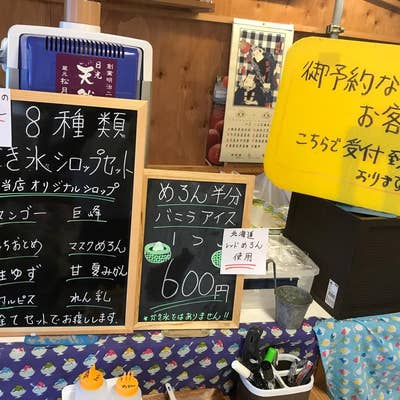 創業明治二
日光
天然
蔵元 松月
の
8種類
き氷シロップセット
当店オリジナルシロップ
マンゴー 巨峰
ちおとめ マスクめろん
生ゆず 甘夏みかん
カルピス れん乳
全てセットでお渡しします。
めろん半分
バニラアイス
1つ
600円
*かき氷とはありません!!
北海道
レッドめろん
使用
御予約な
お客
こちらで受付致
おります